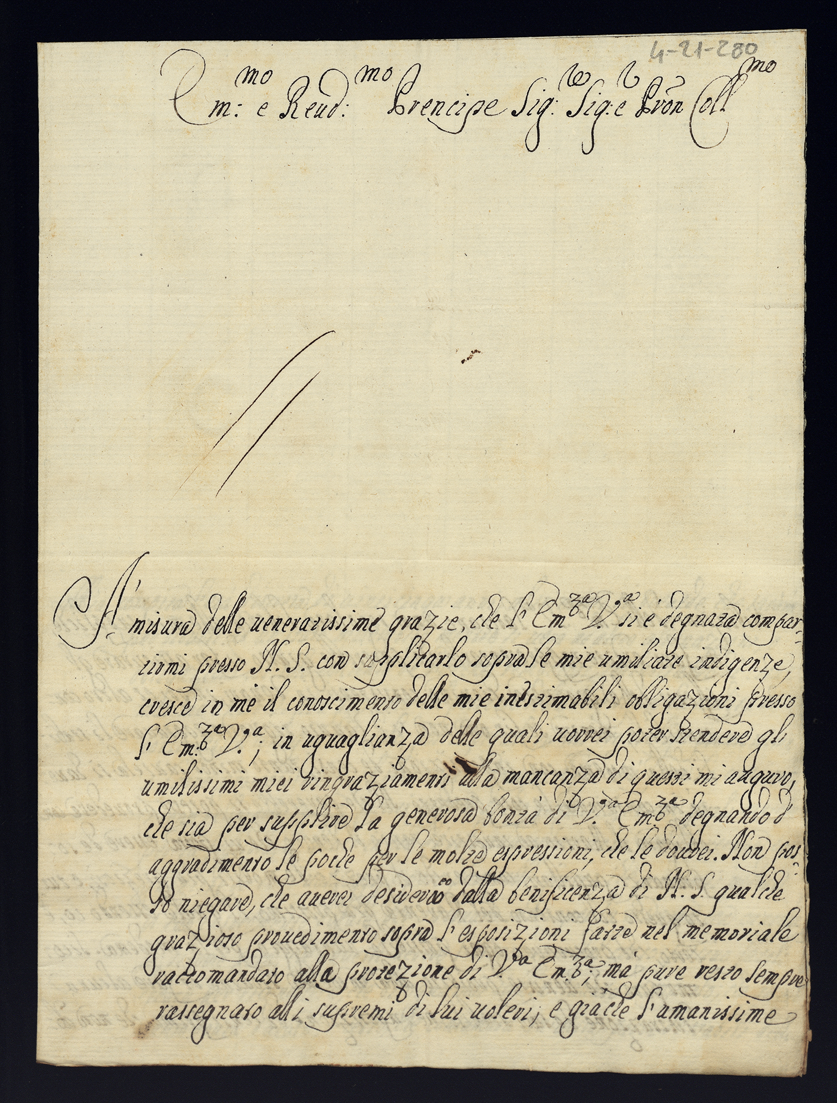 4-21-280
Em:mo e Reud:mo Prencipe Sig:re Sig:e Prōn Coll:mo
A' misura delle ueneratissime grazie, che l'Em:za V:a si è degnata compar-
tirmi presso N. S. con supplicarlo sopra le mie umiliate indigenze,
cresce in me il conoscimento delle mie inestimabili obligazioni presso
l'Em:za V:a; in uguaglianza delle quali uorrei poter stendere gli
umilissimi miei ringraziamenti alla mancanza di questi mi auguro,
che sia per supplire la generosa bontà di V:a Em:za degnando d'
aggradimento le poche per le molte espressioni, che le dourei. Non pos-
so niegare, che auerei desiderio dalla benificenza di N. S. qualche
grazioso prouedimento sopra l'esposizioni fatte nel memoriale
raccomandato alla protezione di V:a Em:za; mà pure resto sempre
rassegnato alli supremi di lui uoleri; e giache l'umanissime